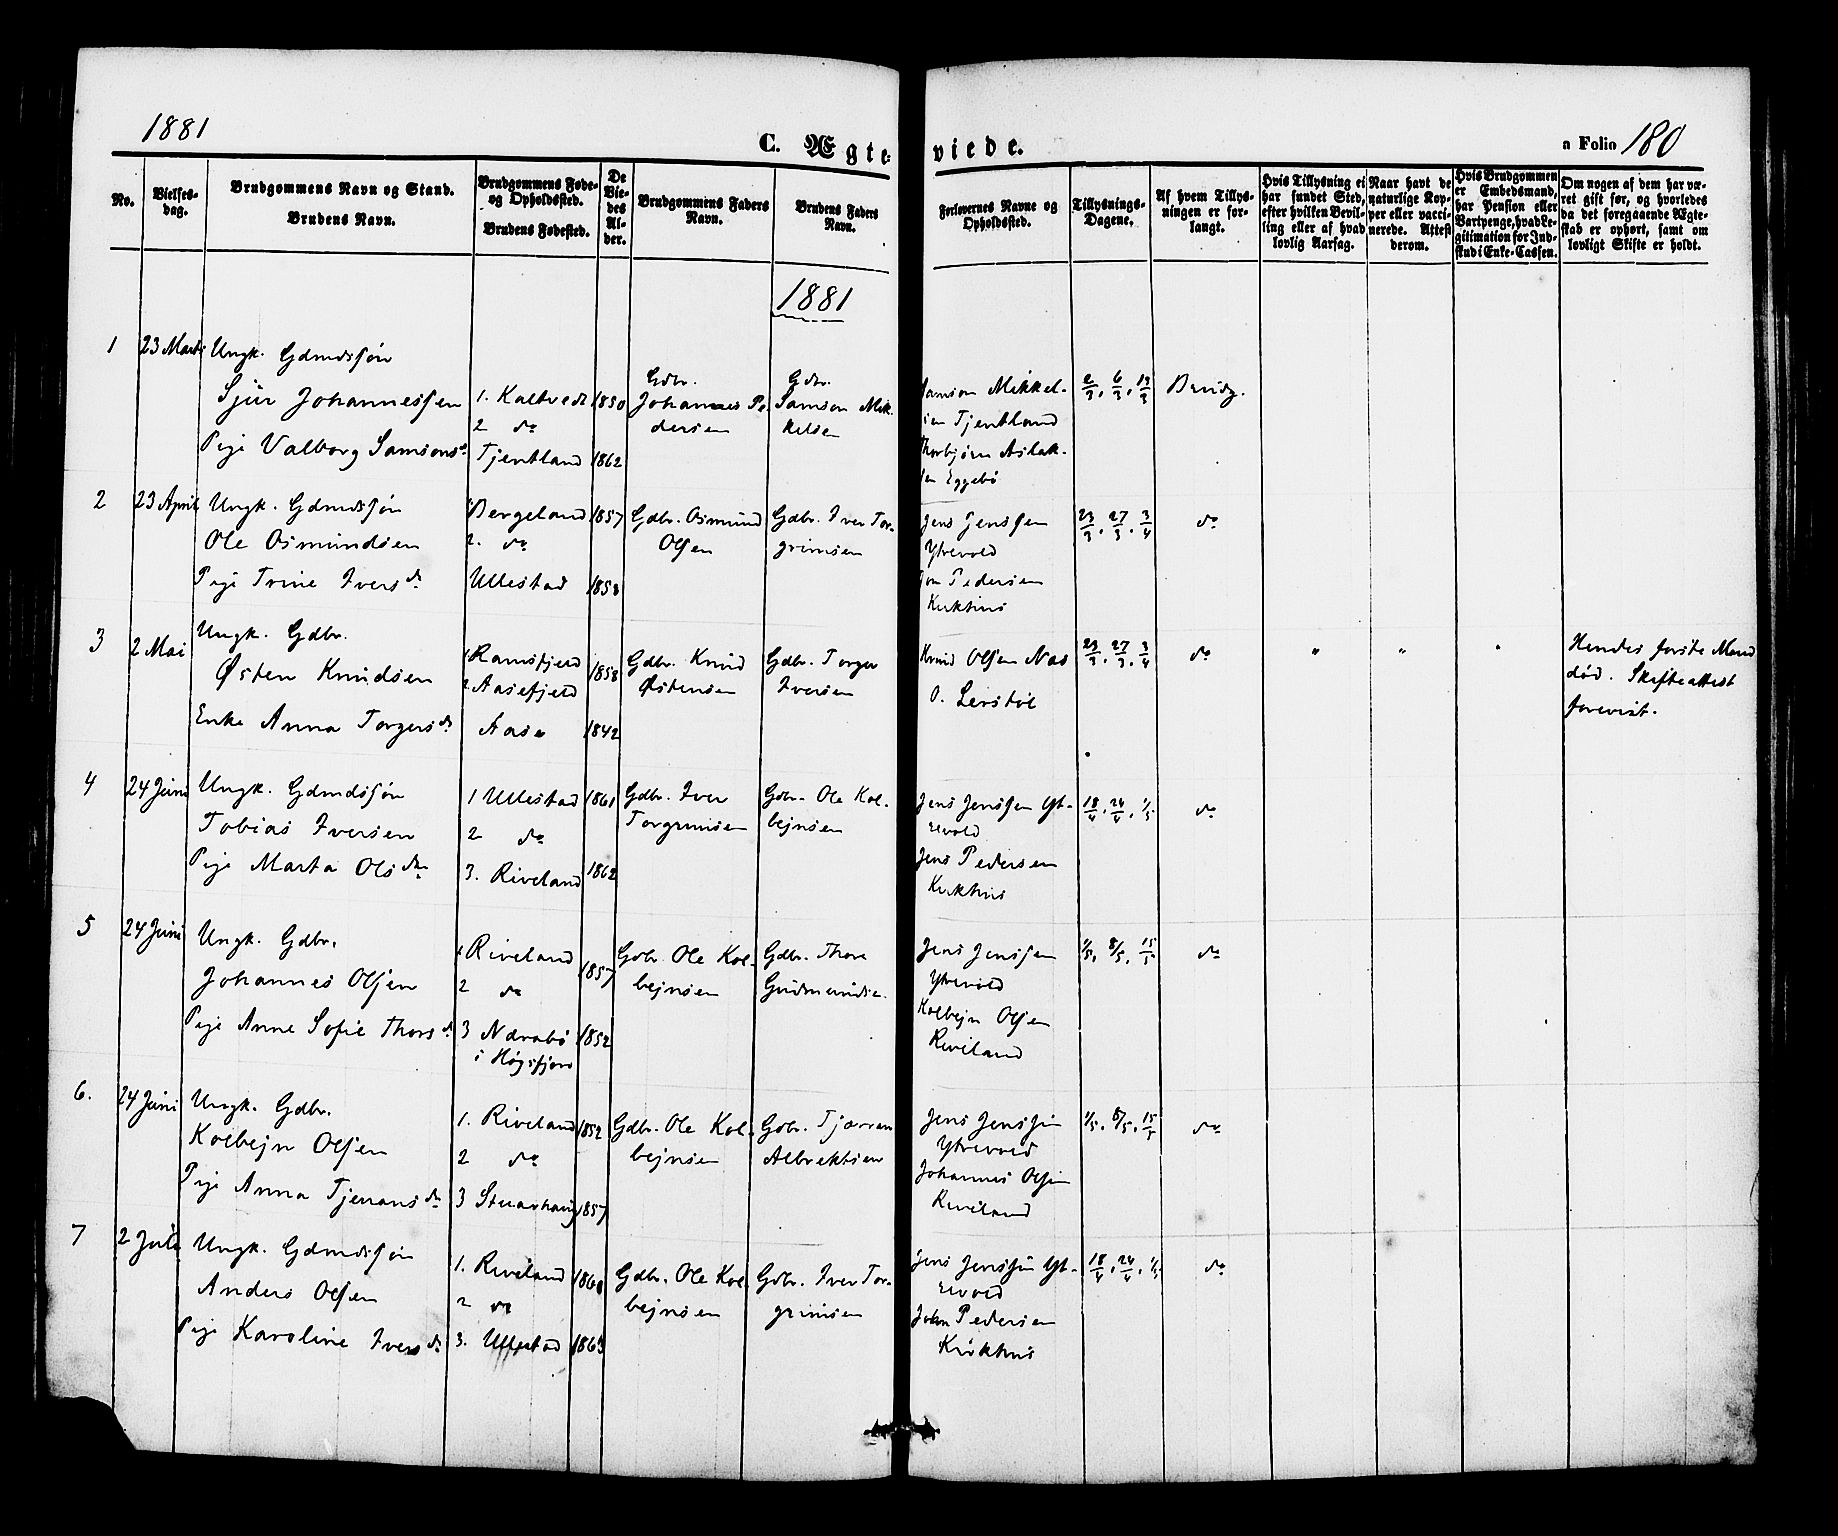 1881
C. Ægteviede.
a Folio 180
No.
Vielses-
dag.
Brudgommens Navn og Stand.
Brudens Navn.
Brudgommens Føde-
og Opholdssted.
Brudens Fødested.
De
Vie-
des
Al-
der.
Brudgommens Faders
Navn.
Brudens Faders
Navn.
Forlovernes Navne og
Opholdssted.
Tillysnings-
Dagene.
Af hvem Tillys-
ningen er for-
langt.
Hvis Tillysning ei
har fundet Sted,
efter hvilken Bevil-
ling eller af hvad
lovlig Aarsag.
Naar havt de
naturlige Kop-
per eller vacci-
nerede. Attest
derom.
Hvis Brudgommen
er Embedsmand,
har Pension eller
Vartpenge, hvad Le-
gitimation for Ind-
skud i Enke-Cassen.
Om nogen af dem har væ-
ret gift før, og hvorledes
da det foregaaende Ægte-
skab er ophørt, samt om
lovligt Skifte er holdt.
1881
1
23 Marts
Ungk. Gdmdssøn
Sjur Johannessen
Pige Valborg Samsonsd.
1. Kaltvedt
2 do
Tjentland
1850
1862
Gdbr.
Johannes Pe-
dersen
Gdbr.
Samson Mik-
kelsen
Samson Mikkel-
sen Tjentland
Thorbjørn Aslak-
sen Eggebø
2/3, 6/3, 13/3
Brudg.
2
23 April
Ungk. Gdmdssøn
Ole Osmundsen
Pige Trine Iversd.
Bergeland
2. do
Ullestad
1857
1858
Gdbr. Osmund
Olsen
Gdbr. Iver Tor-
grimsen
Jens Jenssen
Ytrevold
Jon Pedersen
Kirkhus
23/3, 27/3, 3/4
do
3
2 Mai
Ungk. Gdbr.
Østen Knudsen
Enke Anna Torgersd.
1 Ramsfjeld
2 Aasefjeld
Aase
1858
1842
Gdbr. Knud
Østensen
Gdbr. Torger
Iversen
Knud Olsen Nas
O. Lerstøl
23/3, 27/3, 3/4
do
"
"
"
Hendes første Mand
død. Skifteattest
forevist.
4
24 Juni
Ungk. Gdmdssøn
Tobias Iversen
Pige Marta Olsdr.
1 Ullestad
2 do
3. Riveland
1861
1862
Gdbr. Iver
Torgrimsen
Gdbr. Ole Kol-
bejnsen
Jens Jenssen Yt-
revold
Jens Pedersen
Kirkhus
18/4, 24/4, 1/5
do
5
24 Juni
Ungk. Gdbr.
Johannes Olsen
Pige Anne Sofie Thorsd.
1 Riveland
2 do
3 Nærabø
i Høgsfjord
1857
1852
Gdbr. Ole Kol-
bejnsen
Gdbr. Thore
Gudmundse.
Jens Jenssen
Ytrevold
Kolbejn Olsen
Riveland
1/5, 8/5, 15/5
do
6.
24 Juni
Ungk. Gdbr.
Kolbejn Olsen
Pige Anna Tjeransd.
1. Riveland
2 do
3
1852
1857
Gdbr. Ole Kol-
bejnsen
Gdbr. Tjærran
Albrektsen
Jens Jenssen
Ytrevold
Johannes Olsen
Riveland
1/5, 8/5, 15/5
do
7
2 Juli
Ungk. Gdmdssøn
Anders Olsen
Pige Karoline Iversd.
1. Riveland
2 do
3. Ullestad
1860
1863
Gdbr. Ole Kol-
bejnsen
Gdbr. Iver Tor-
grimsen
Jens Jenssen Yt-
revold
John Pedersen
Kirkhus
18/4, 24/4, 1/5
do